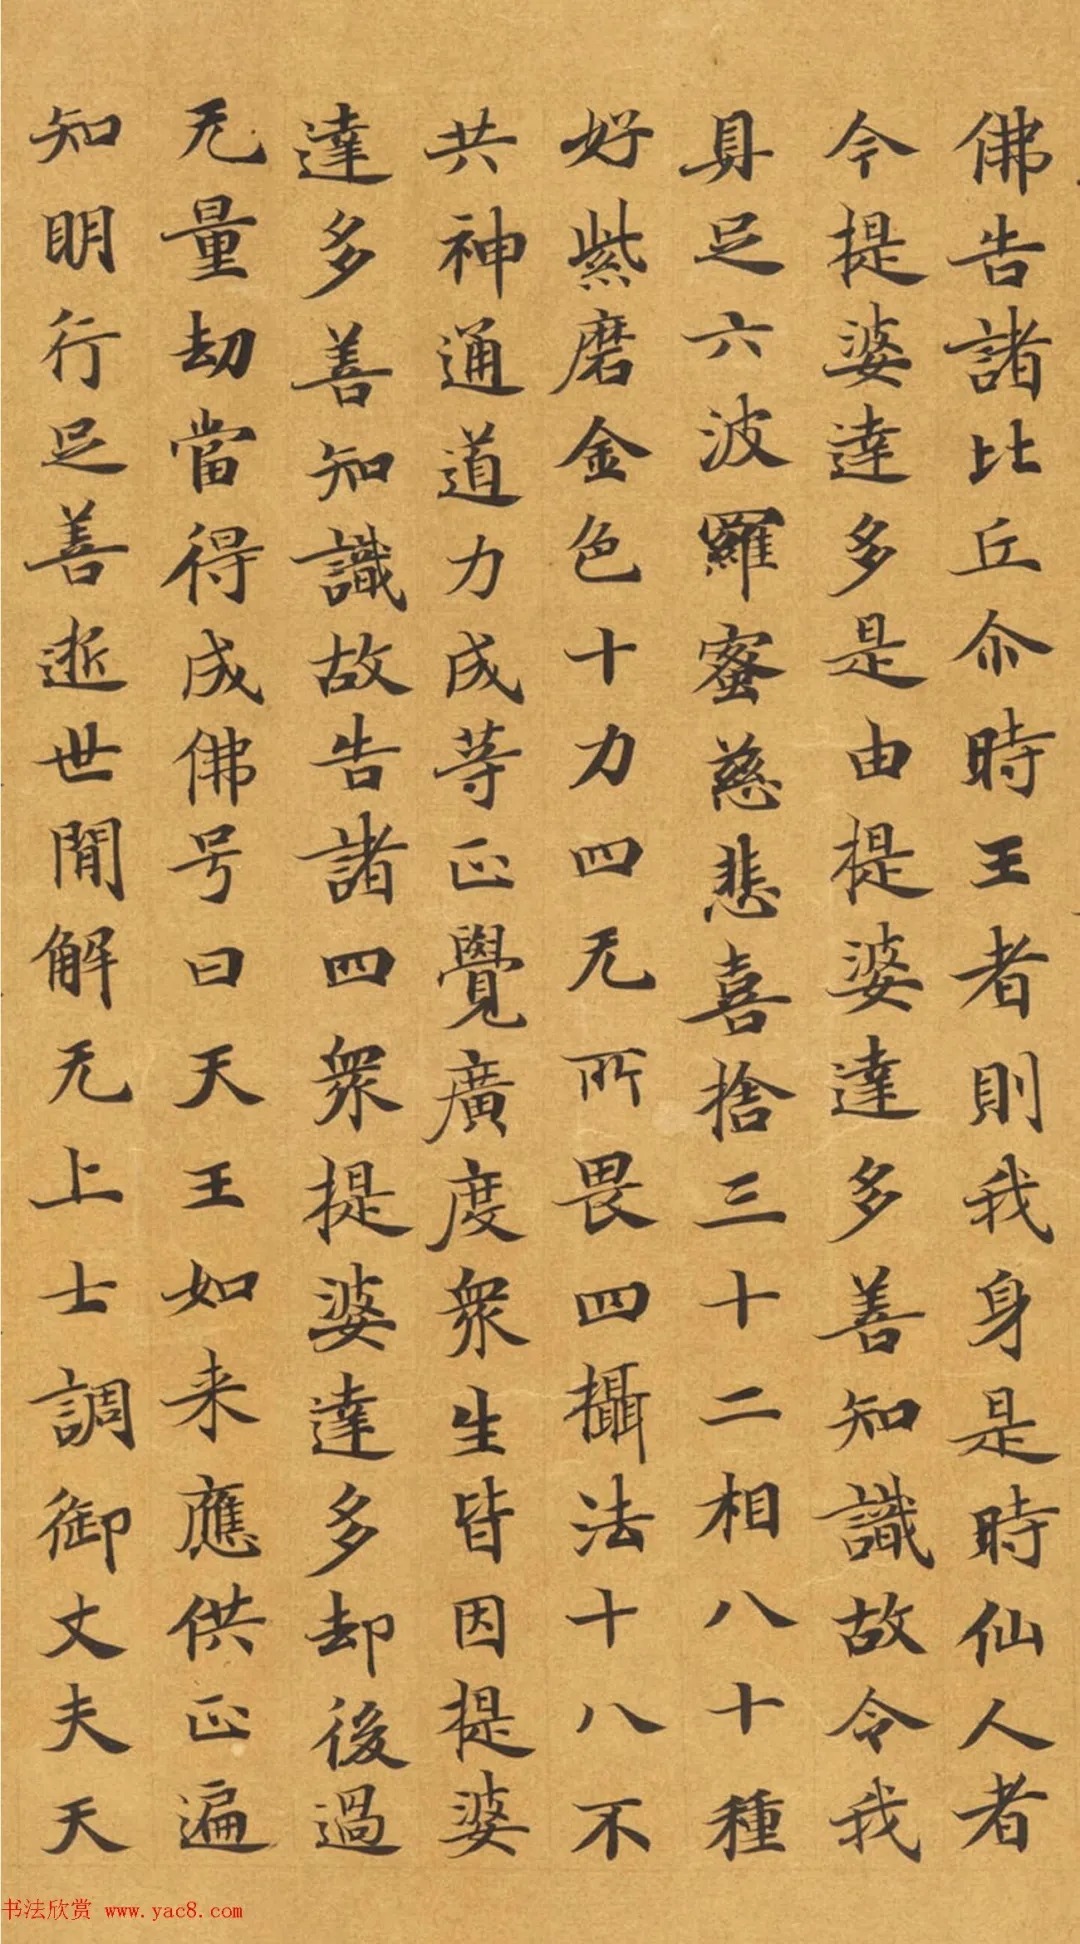 佛告諸比丘尒時王者則我身是時仙人者
今提婆達多是由提婆達多善知識故令我
具足六波羅蜜慈悲喜捨三十二相八十種
好紫磨金色十力四无所畏四攝法十八不
共神通道力成等正覺廣度眾生皆因提婆
達多善知識故告諸四眾提婆達多却後過
无量劫當得成佛号曰天王如来應供正遍
知明行足善逝世間解无上士調御丈夫天
书法欣赏 www.yac8.com